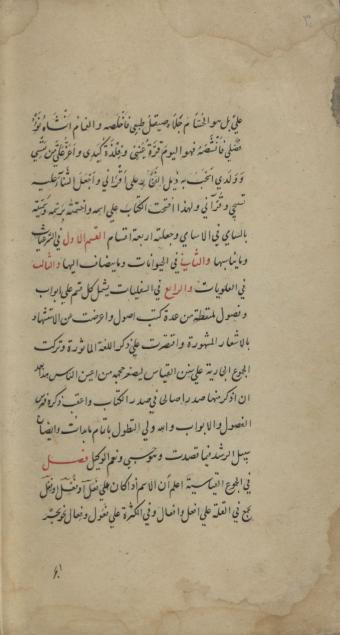 علي بل هو الحسام جلاه صيقل طبعي فأخلصه والغمام انشأه نوء
فضلي فانشصه فهو اليوم قرة عيني وفلذة كبدي واعز علي من نفسي
وولدي اسحب به ذيل الفخار على اقراني واجعل الثناء عليه
تسبيحي وقرآني ولهذا افتحت الكتاب على اسمه واختتمته برسمه وسميته
بالسامي في الاسامي وجعلته اربعة اقسام القسم الاول في الشرعيات
وما يناسبها والثاني في الحيوانات وما يضاف اليها والثالث
في العلويات والرابع في السفليات يشتمل كل قسم على ابواب
وفصول ملتقطة من عدة كتب اصول واعرضت عن الاستشهاد
بالاشعار المشهورة واقتصرت على ذكر اللغة المأثورة وتركت
الجموع الجارية على سنن القياس ليصغر حجمه من اعين الناس بعد
ان اذكر منها صدرا صالحا في صدر الكتاب واعقب ذكره فهرس
الفصول والابواب والله ولي التطول باتمام ما بدأت وايضاح
سبيل الرشد فيما قصدت وهو حسبي ونعم الوكيل فصل
في الجموع القياسية اعلم ان الاسم اذا كان على فعل وفعل وفعل
يجمع في القلة على افعل وافعال وفي الكثرة على فعول وفعال نحو بحر